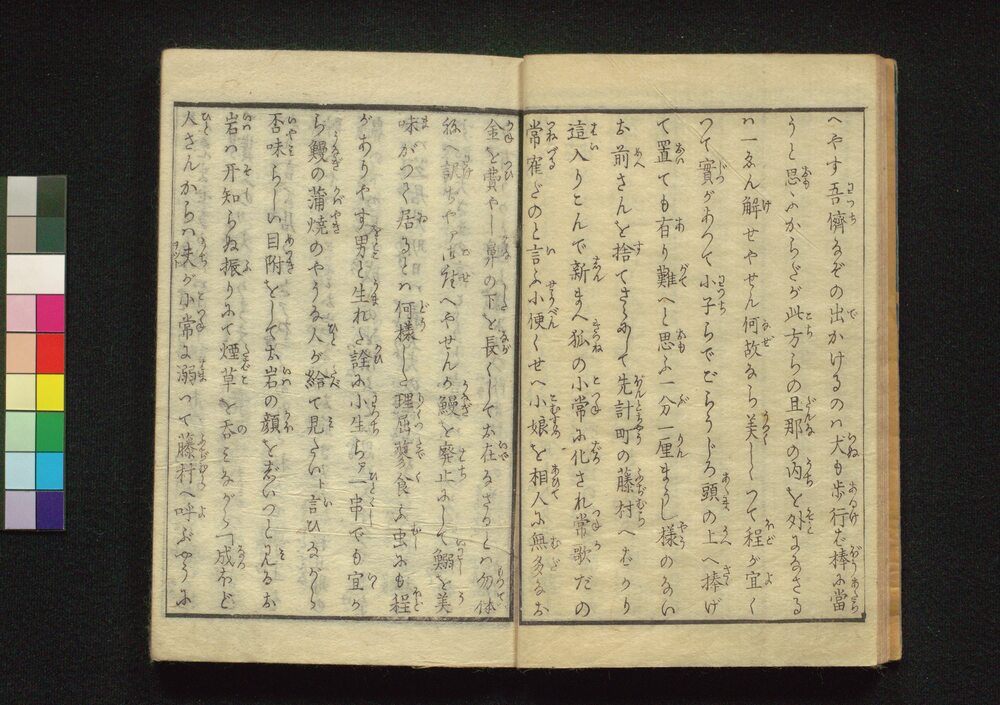 へやす吾儕なぞの出かけるのハ犬も歩行ば棒に當
うと思ふからだが此方らの旦那の内を外になさる
ハ一ゑん解せやせん何故なら美しくつて程が宜く
つて實があつて小子らでごらうじろ頭の上へ捧げ
て置ても有り難へと思ふ一分一厘まうし様のない
お前さんを捨てさらにして先計町の藤村へばかり
這入りこんで新まへ狐の小常に化され常歌だの
常寉だのと言ふ小便くせへ小娘を相人に無多なお
金を費やし鼻の下を長くしてお在なさるとハ勿体
ねへ訳ぢやァ厶いやせんか鰻を廃止にして鰯を美
味がつて居るとハ何様した理屈蓼食ふ虫にも程
がありやす男と生れた詮に小生らァ一串でも宜か
ら鰻の蒲焼のやうな人が給て見たいト言ひながら
否味らしい目附をしてお岩の顔をぢいつと見るお
岩ハ开知らぬ振りにて煙草を呑ミながら「成ほど
人さんからハ夫が小常に溺つて藤村へ呼ぶやうに